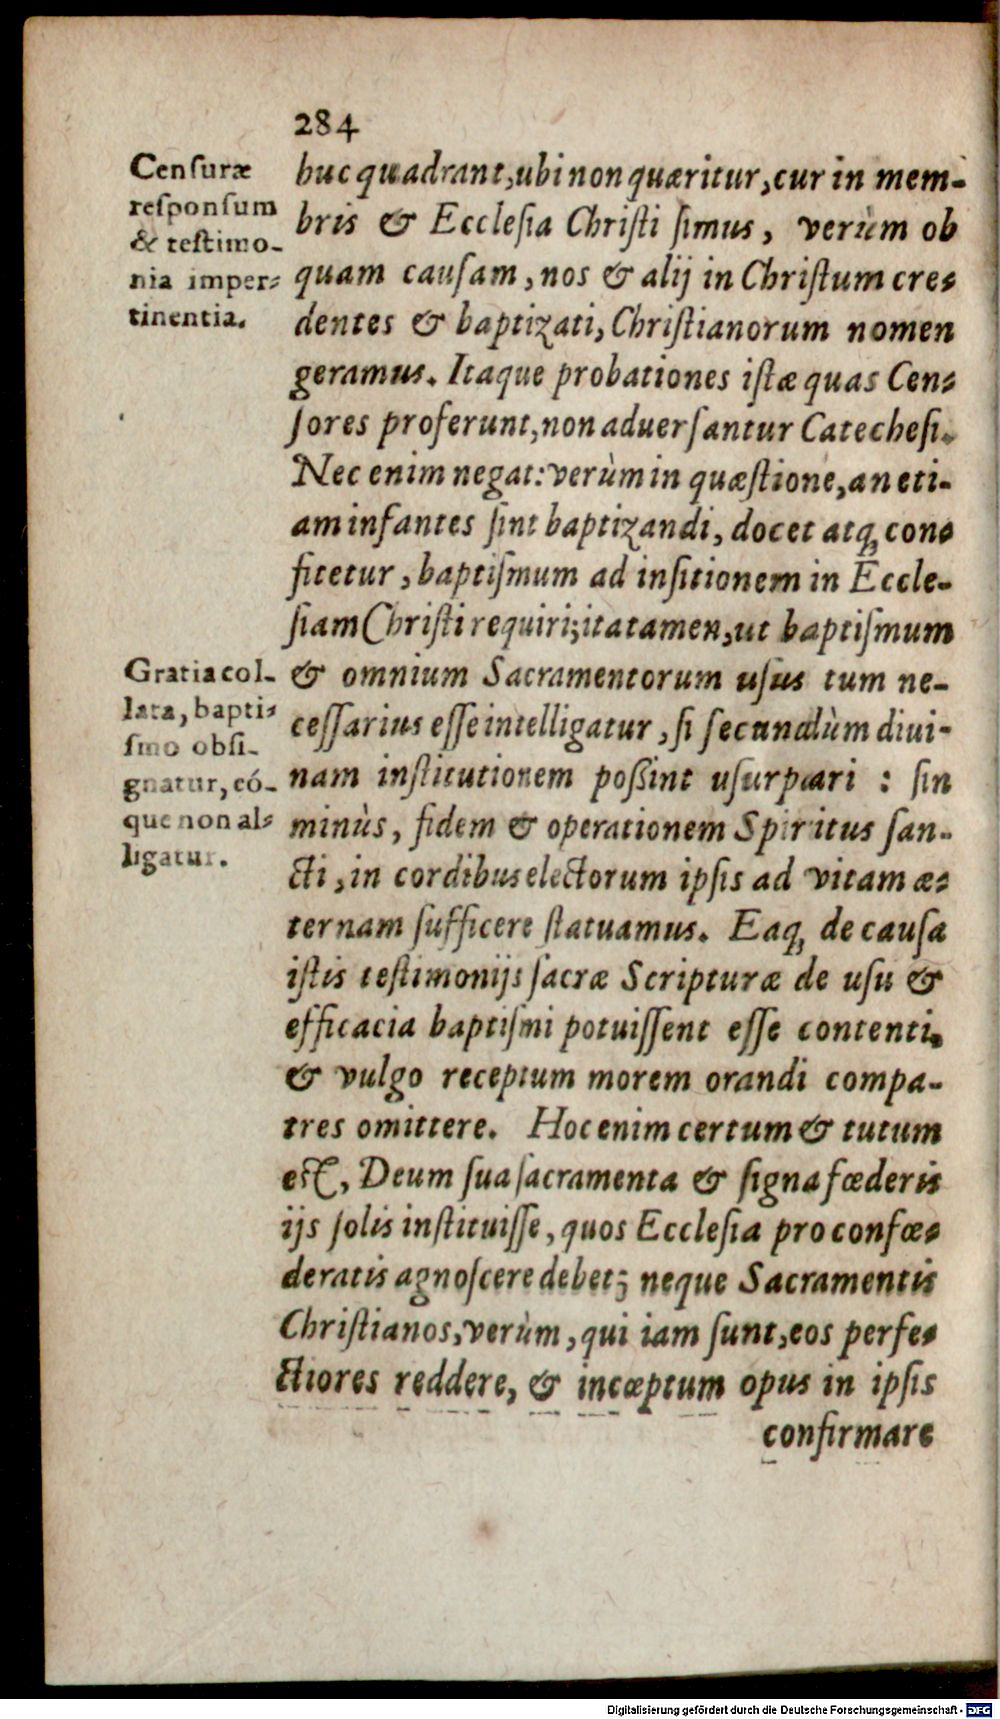 284
Censuræ
responsum
& testimo-
nia imper-
tinentia.
huc quadrant, ubi non quæritur, cur in mem-
bris & Ecclesia Christi simus, verùm ob
quam causam, nos & alij in Christum cre-
dentes & baptizati, Christianorum nomen
geramus. Itaque probationes istæ quas Cen-
sores proferunt, non aduersantur Catechesi.
Nec enim negat: verùm in quæstione, an eti-
am infantes sint baptizandi, docet atq; con-
fitetur, baptismum ad insitionem in Eccle-
siam Christi requiri; ita tamen, ut baptismum
Gratia col-
lata, bapti-
smo obsi-
gnatur, eó-
que non al-
ligatur.
& omnium Sacramentorum usus tum ne-
cessarius esse intelligatur, si secundùm diui-
nam institutionem poßint usurpari : sin
minùs, fidem & operationem Spiritus san-
cti, in cordibus electorum ipsis ad vitam æ-
ternam sufficere statuamus. Eaq; de causa
istis testimonijs sacræ Scripturæ de usu &
efficacia baptismi potuissent esse contenti,
& vulgo receptum morem orandi compa-
tres omittere. Hoc enim certum & tutum
est, Deum sua sacramenta & signa fœderis
ijs solis instituisse, quos Ecclesia pro confœ-
deratis agnoscere debet; neque Sacramentis
Christianos, verùm, qui iam sunt, eos perfe-
ctiores reddere, & incœptum opus in ipsis
confirmare
Digitalisierung gefördert durch die Deutsche Forschungsgemeinschaft - DFG